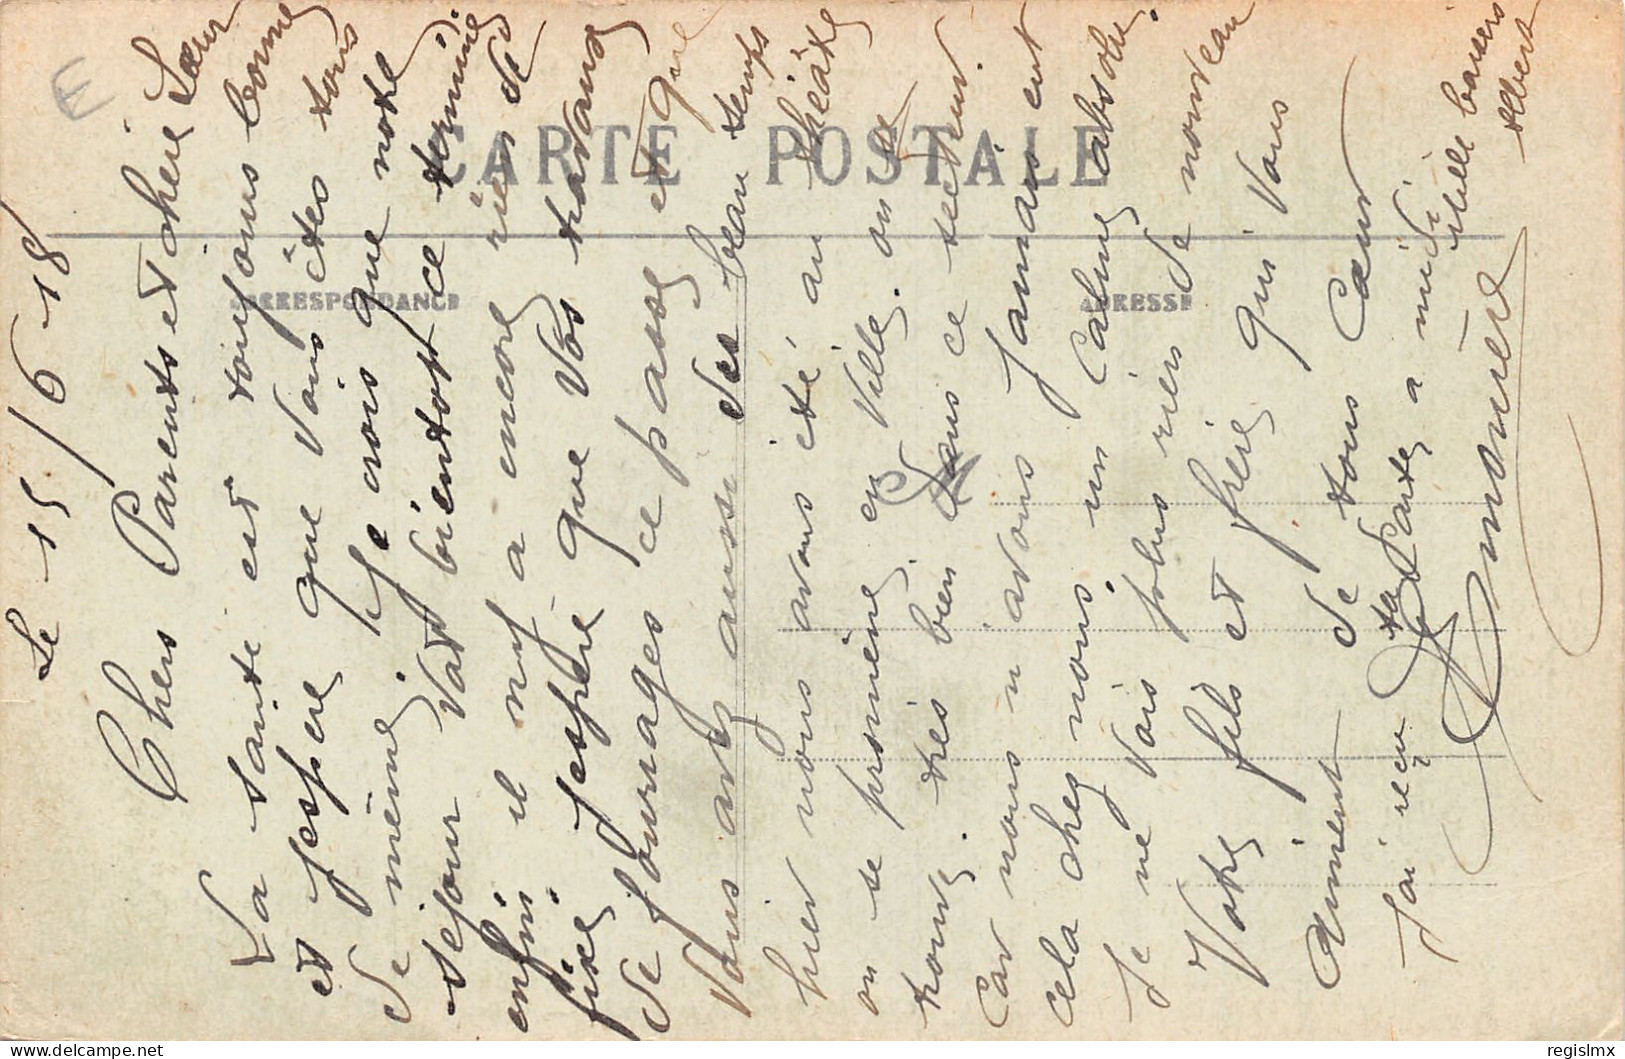 Le 15/6-18
Chers Parents et chère Sœur
La santé est toujours bonne
et jespère que vous êtes tous
de même. Je crois que notre
sejour vat bientot ce terminé
enfin il nyf a encore rien de
fixe. jespère que Vos travaux
de fourrages ce passe et que
Vous avez aussi du beau temps
hier nous avons été au théâtre
on se promène en Ville. on se
trouve très bien dans ce secteur.
Car nous n'avons jamais eut
cela chez nous, un calme absolu.
Je ne vois plus rien de nouveau
Votre fils et frère qui Vous
Aiment de tous Cœur
J'ai reçu ta Carte a midi
Mille baisers
Albert
CARTE POSTALE
CORRESPONDANCE
ADRESSE
E
regislmx